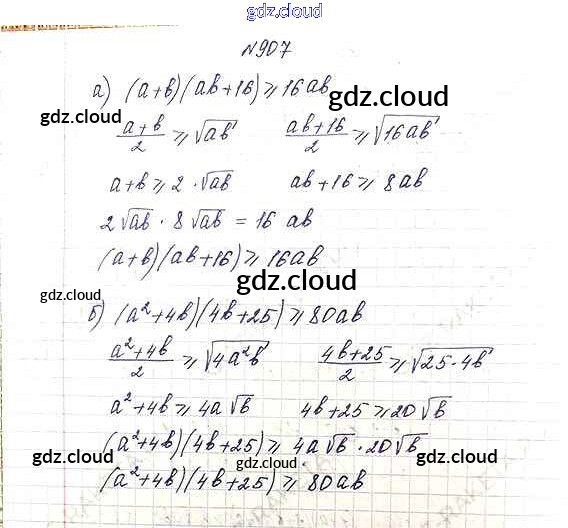 gdz.cloud
№907
а) (a+b)(ab+16)⩾16ab
gdz.cloud
gdz.cloud
(a+b)/2 ⩾ √ab (ab+16)/2 ⩾ √16ab
a+b⩾2·√ab ab+16⩾8ab
2√ab · 8√ab = 16 ab
(a+b)(ab+16)⩾16ab
gdz.cloud
gdz.cloud
gdz.cloud
б) (a²+4b)(4b+25)⩾80ab
(a²+4b)/2 ⩾ √4a²b (4b+25)/2 ⩾ √25·4b
a²+4b⩾4a√b 4b+25⩾20√b
(a²+4b)(4b+25)⩾4a√b·20√b
gdz.cloud gdz.cloud gdz.cloud
(a²+4b)(4b+25)⩾80ab